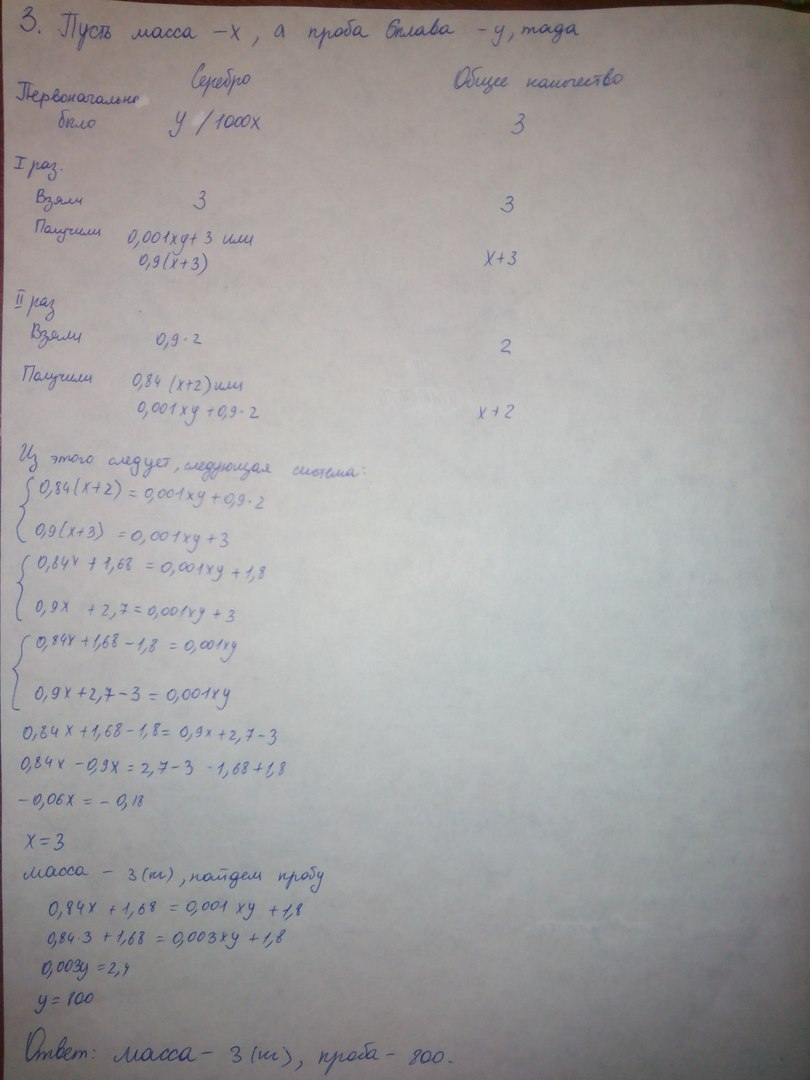 3. Пусть масса - x, а проба сплава - y, тогда
Серебро Общее количество
Первоначально
было y /1000x 3
I раз.
Взяли 3 3
Получили 0,001xy+3 или
0,9(x+3) x+3
II раз
Взяли 0,9·2 2
Получили 0,84(x+2) или
0,001xy+0,9·2 x+2
Из этого следует, следующая система:
0,84(x+2) = 0,001xy+0,9·2
0,9(x+3) = 0,001xy+3
0,84x+1,68 = 0,001xy+1,8
0,9x+2,7=0,001xy+3
0,84x+1,68-1,8 = 0,001xy
0,9x+2,7-3=0,001xy
0,84x+1,68-1,8= 0,9x+2,7-3
0,84x-0,9x=2,7-3-1,68+1,8
-0,06x = -0,18
x=3
масса - 3(кг), найдем пробу
0,84x+1,68 = 0,001xy+1,8
0,84·3+1,68 = 0,003xy+1,8
0,003y=2,4
y=800
Ответ: масса - 3(кг), проба - 800.